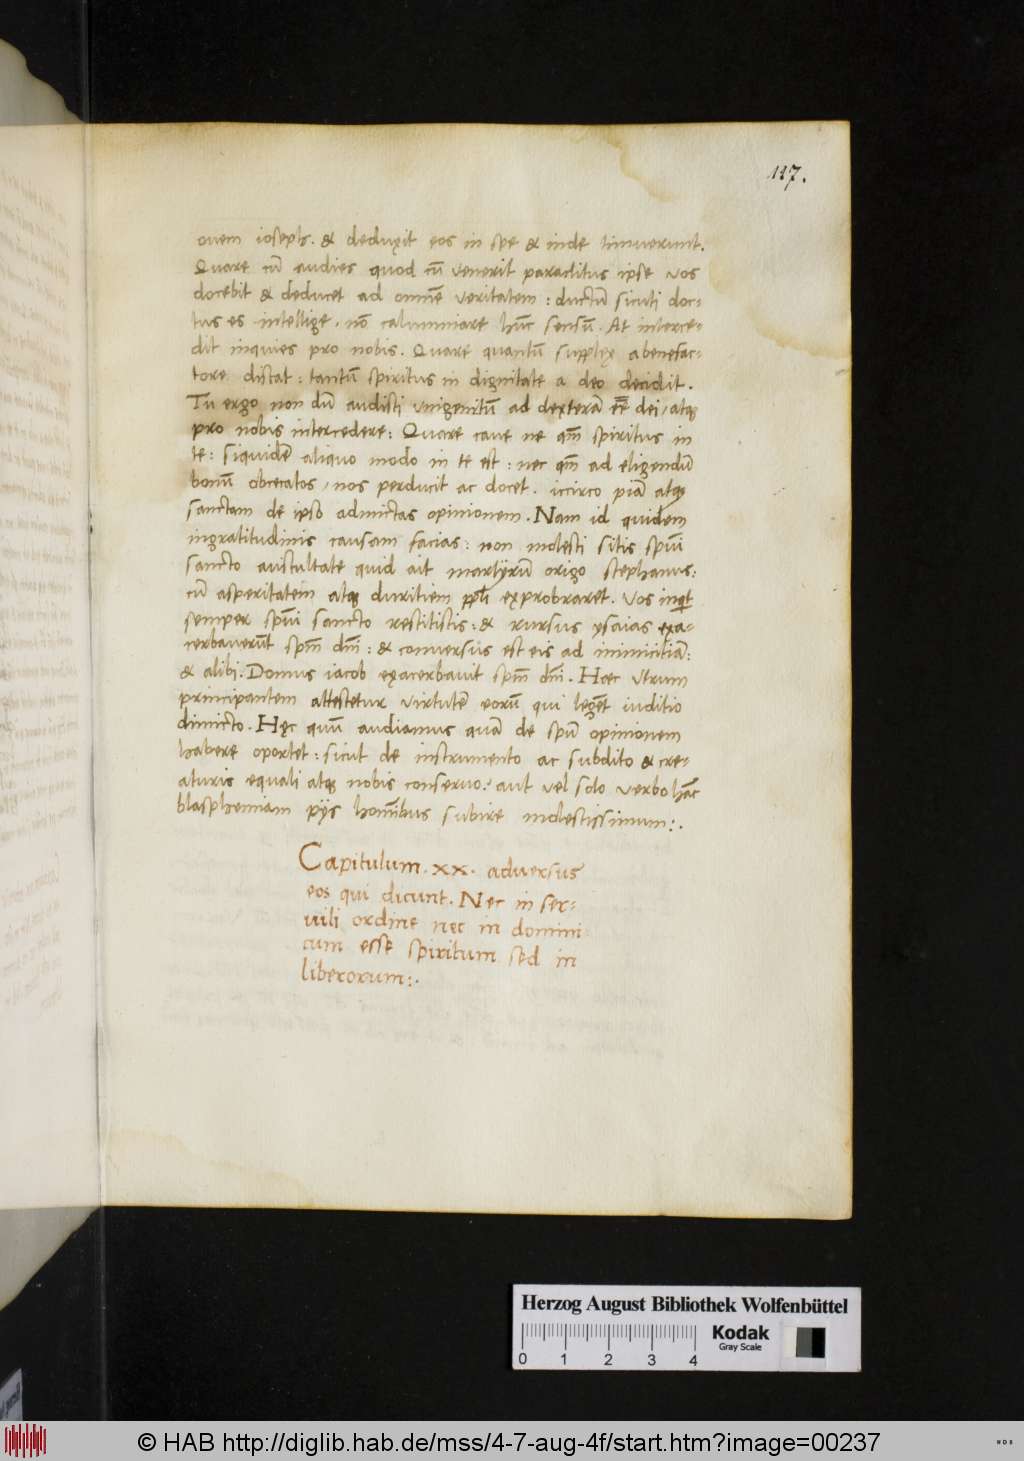 117.
ouem ioseph. & deduxit eos in spe & inde timuerunt.
Quare cū audies quod cū venerit paraclitus ipse vos
docebit & deducet ad omnē veritatem : ductū sicuti doc-
tus es intellige. nō calumniare hūc sensū. At interce-
dit inquies pro nobis. Quare quantū supplex a benefac-
tore distat : tantū spiritus in dignitate a deo decidit.
Tu ergo non dū audisti unigenitū ad dexterā eē dei / atq
pro nobis intercedere : Quare caue ne qm̄ spiritus in
te : siquidē aliquo modo in te est : nec qm̄ ad eligendū
bonū obcecatos / nos perducit ac docet. iccirco piā atq
sanctam de ipso admictas opinionem. Nam id quidem
ingratitudinis causam facias : non molesti sitis spūi
sancto auscultate quid ait martyrū origo stephanus :
cū asperitatem atq duritiem ppl̄i exprobraret. Vos inqt
semper spūi sancto restitistis : & rursus ysaias exa-
cerbauerūt spm̄ dm̄i : & conuersus est eis ad inimicitiā :
& alibi. Domus iacob exacerbauit spm̄ dm̄i. Hæc utrum
principantem attestetur virtutē eorū qui legēt iuditio
dimicto. Hęc quū audiamus quā de spū opinionem
habere oportet : sicut de instrumento ac subdito & cre-
aturis equali atq nobis conseruo : aut vel solo verbo hāc
blasphemiam pijs hom̄ibus subire molestissimum :.
Capitulum. xx. aduersus
eos qui dicunt. Nec in ser-
uili ordine nec in domini
cum esse spiritum sed in
liberorum :.
Herzog August Bibliothek Wolfenbüttel
Kodak
Gray Scale
0 1 2 3 4
© HAB http://diglib.hab.de/mss/4-7-aug-4f/start.htm?image=00237